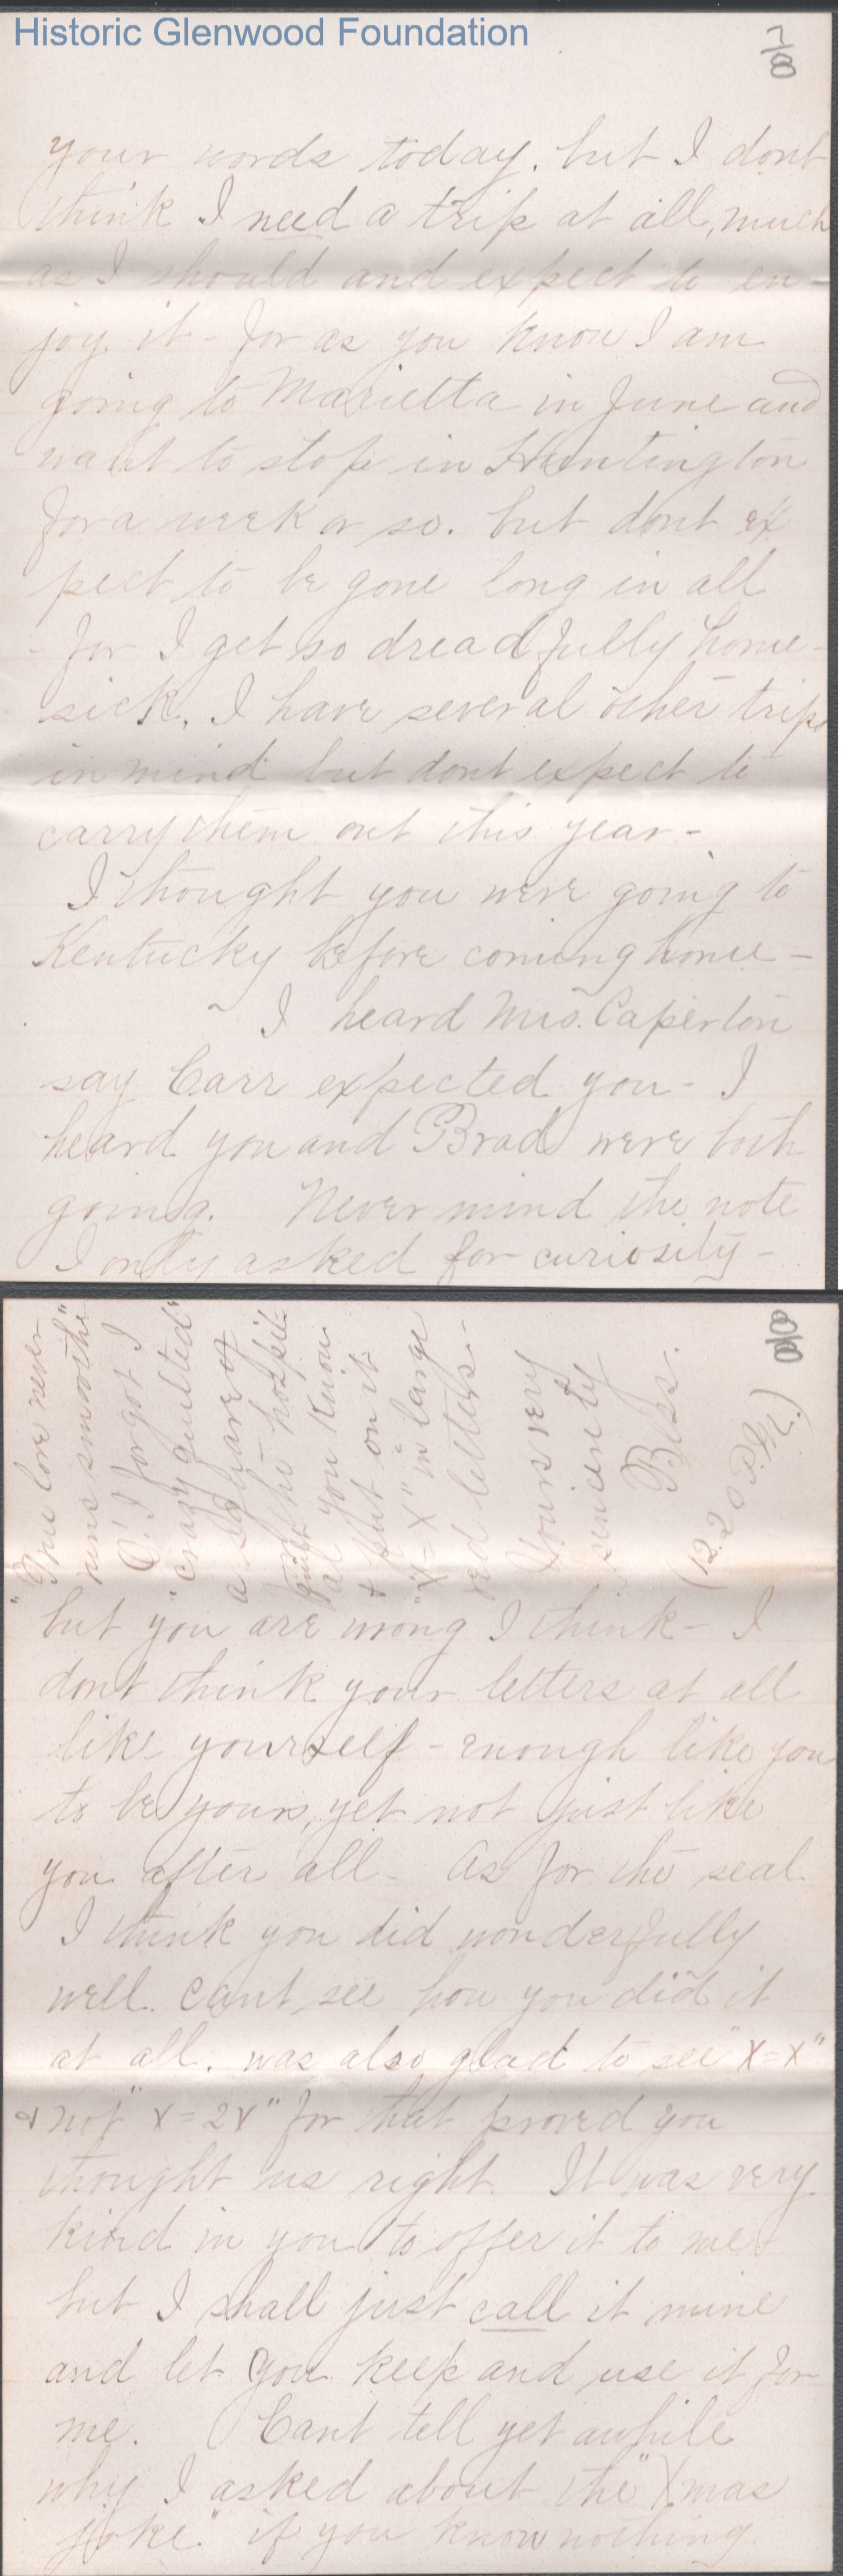 Historic Glenwood Foundation
7/8
your words today, but I dont
think I need a trip at all, much
as I should and expect to en-
joy it - for as you know I am
going to Marietta in June and
want to stop in Huntington
for a week or so. but dont ex
pect to be gone long in all
- for I get so dreadfully home-
sick. I have several other trips
in mind but dont expect to
carry them out this year -
I thought you were going to
Kentucky before coming home -
- I heard Mrs. Caperton
say Carr expected you - I
heard you and Brad were both
going. Never mind the note
I only asked for curiosity -
8/8
but you are wrong I think - I
dont think your letters at all
like yourself - enough like you
to be yours, yet not just like
you after all - As for the seal
I think you did wonderfully
well. cant see how you did it
at all. was also glad to see "X=X"
& not "X=2X" for that proved you
thought us right. It was very
kind in you to offer it to me
but I shall just call it mine
and let you keep and use it for
me. Cant tell yet awhile
why I asked about the "Xmas
joke." if you know nothing
"True love never
runs smoothe"
O! I forgot I
"crazy quilted"
a square of
quilt the hospit-
al you know
& put on it
"X=X" in large
red letters -
Yours very
sincerely
Bess.
(12.20 P.M.)